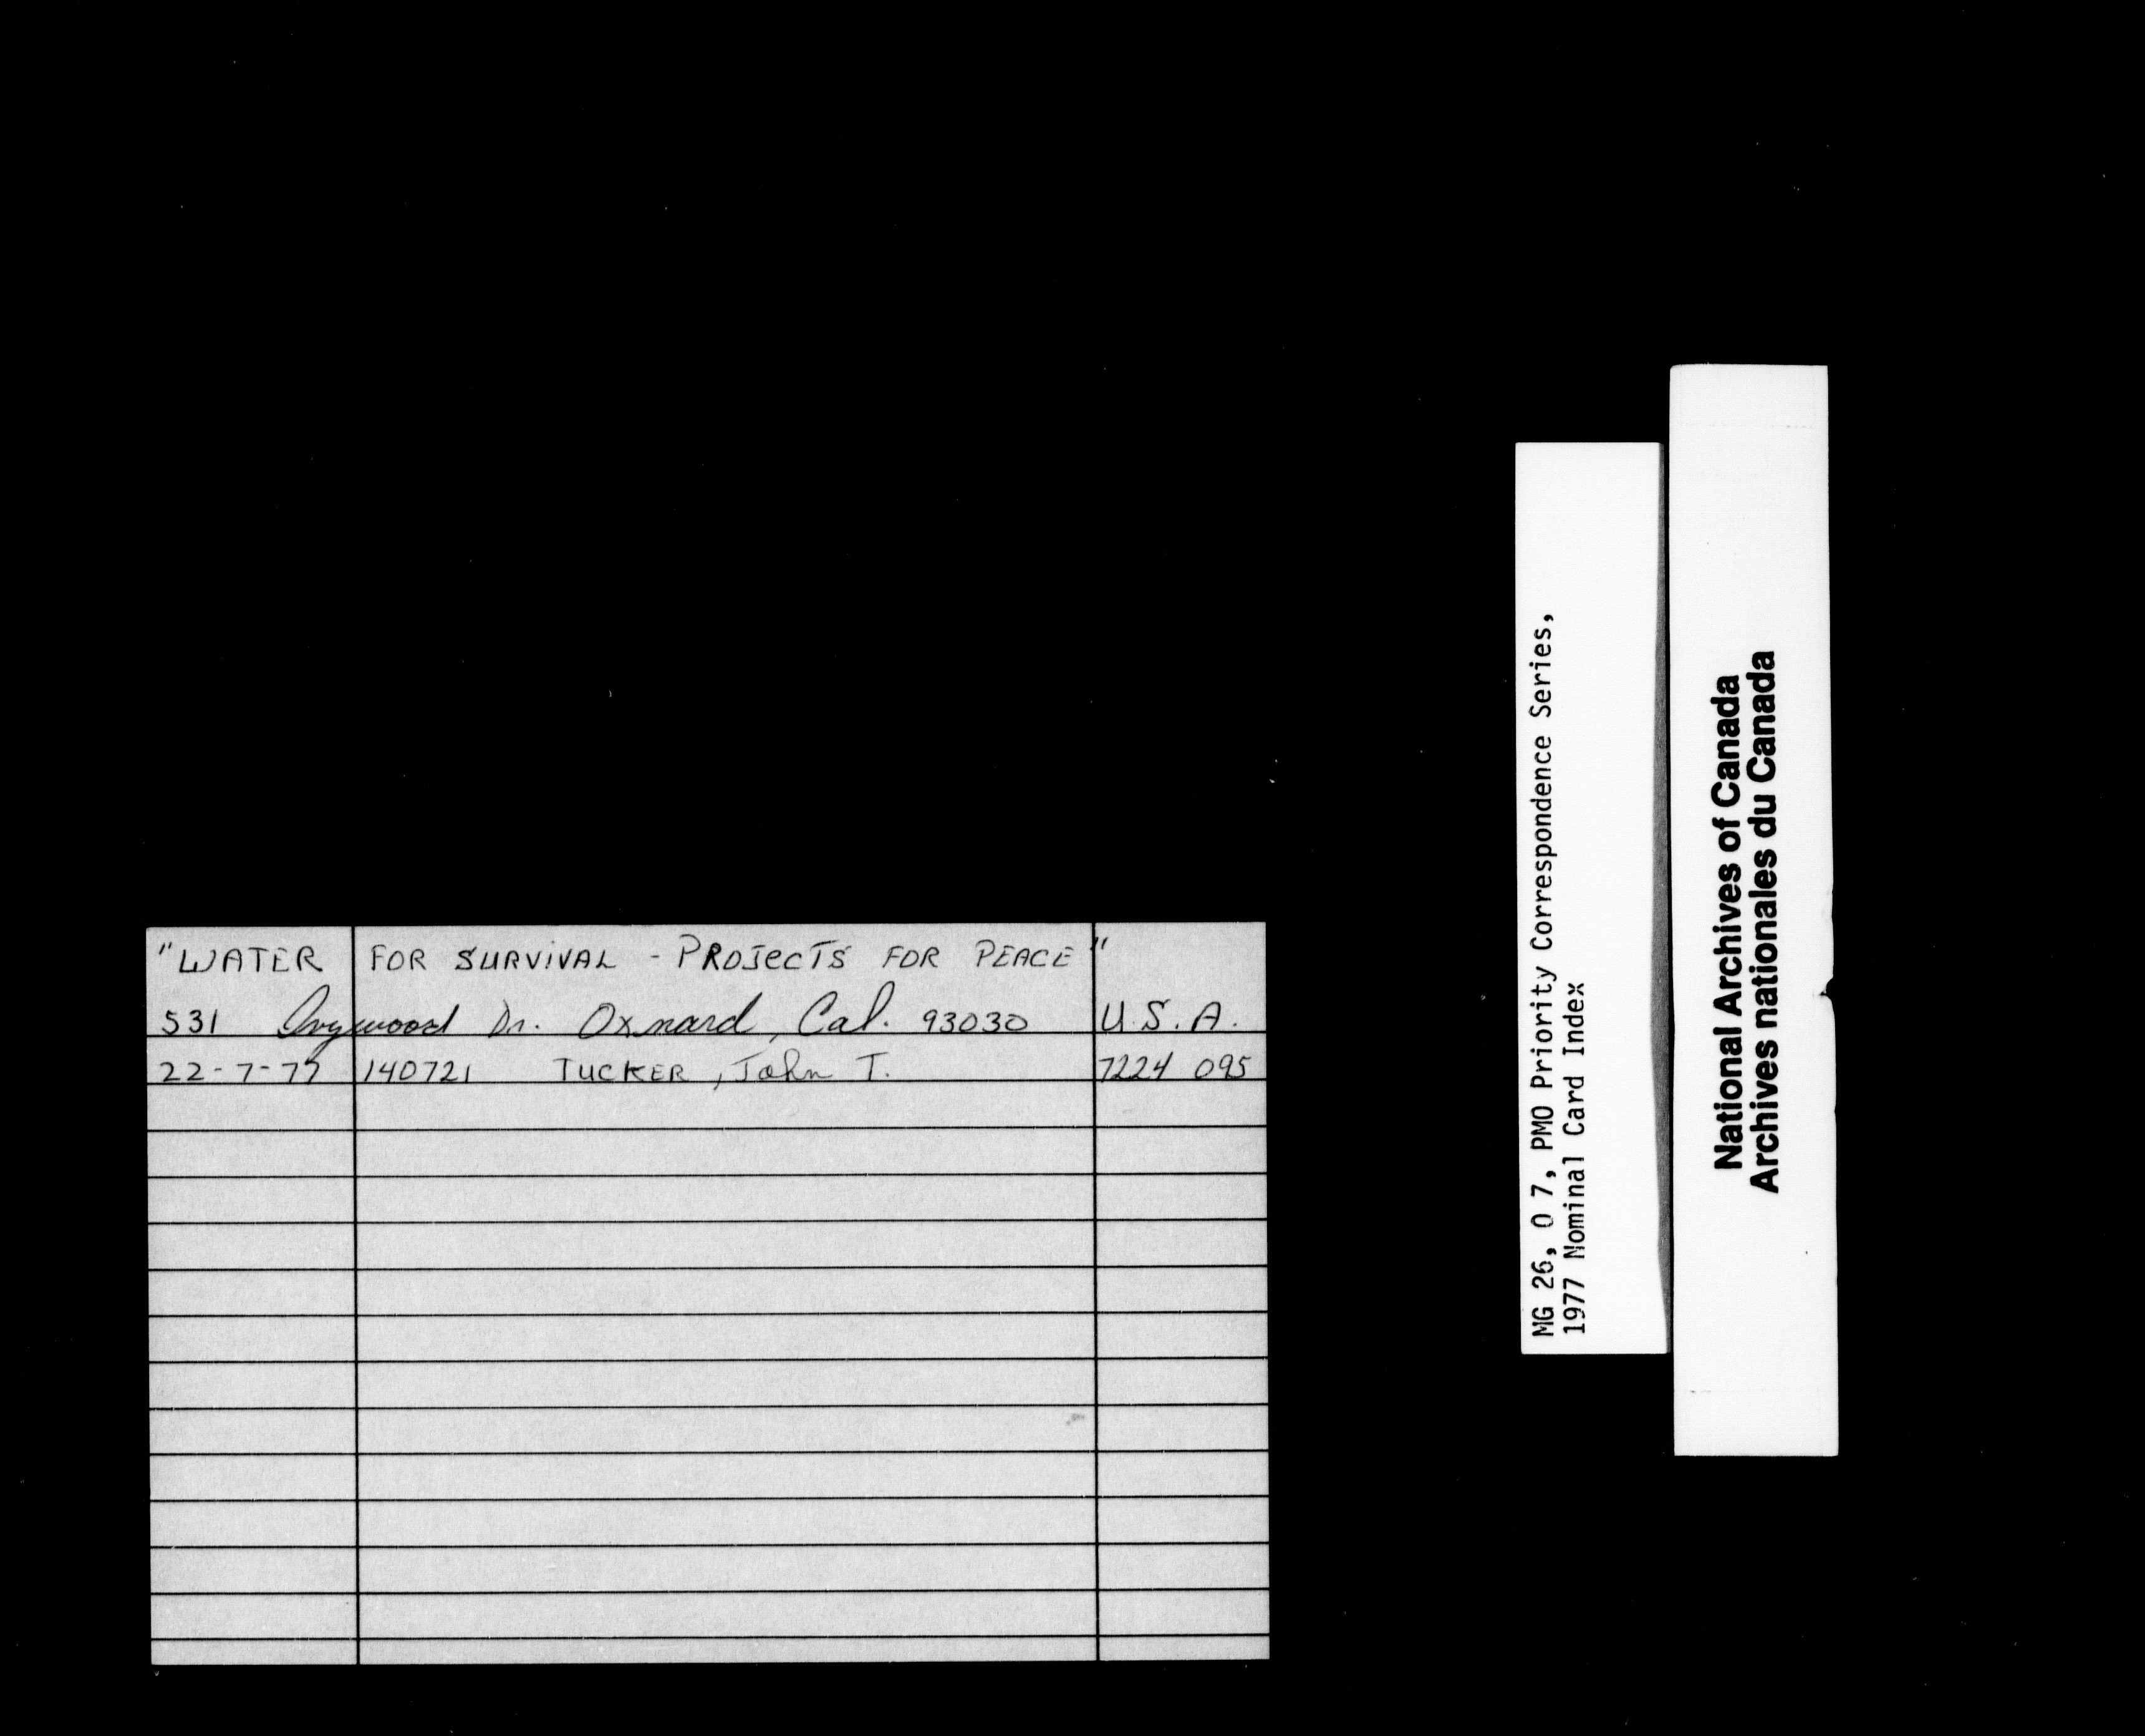 "WATER FOR SURVIVAL - PROJECTS FOR PEACE"
531 Ivywood Dr. Oxnard, Cal. 93030 U.S.A.
22-7-77 140721 TUCKER, John T. 7224 095
MG 26, O 7, PMO Priority Correspondence Series,
1977 Nominal Card Index
National Archives of Canada
Archives nationales du Canada